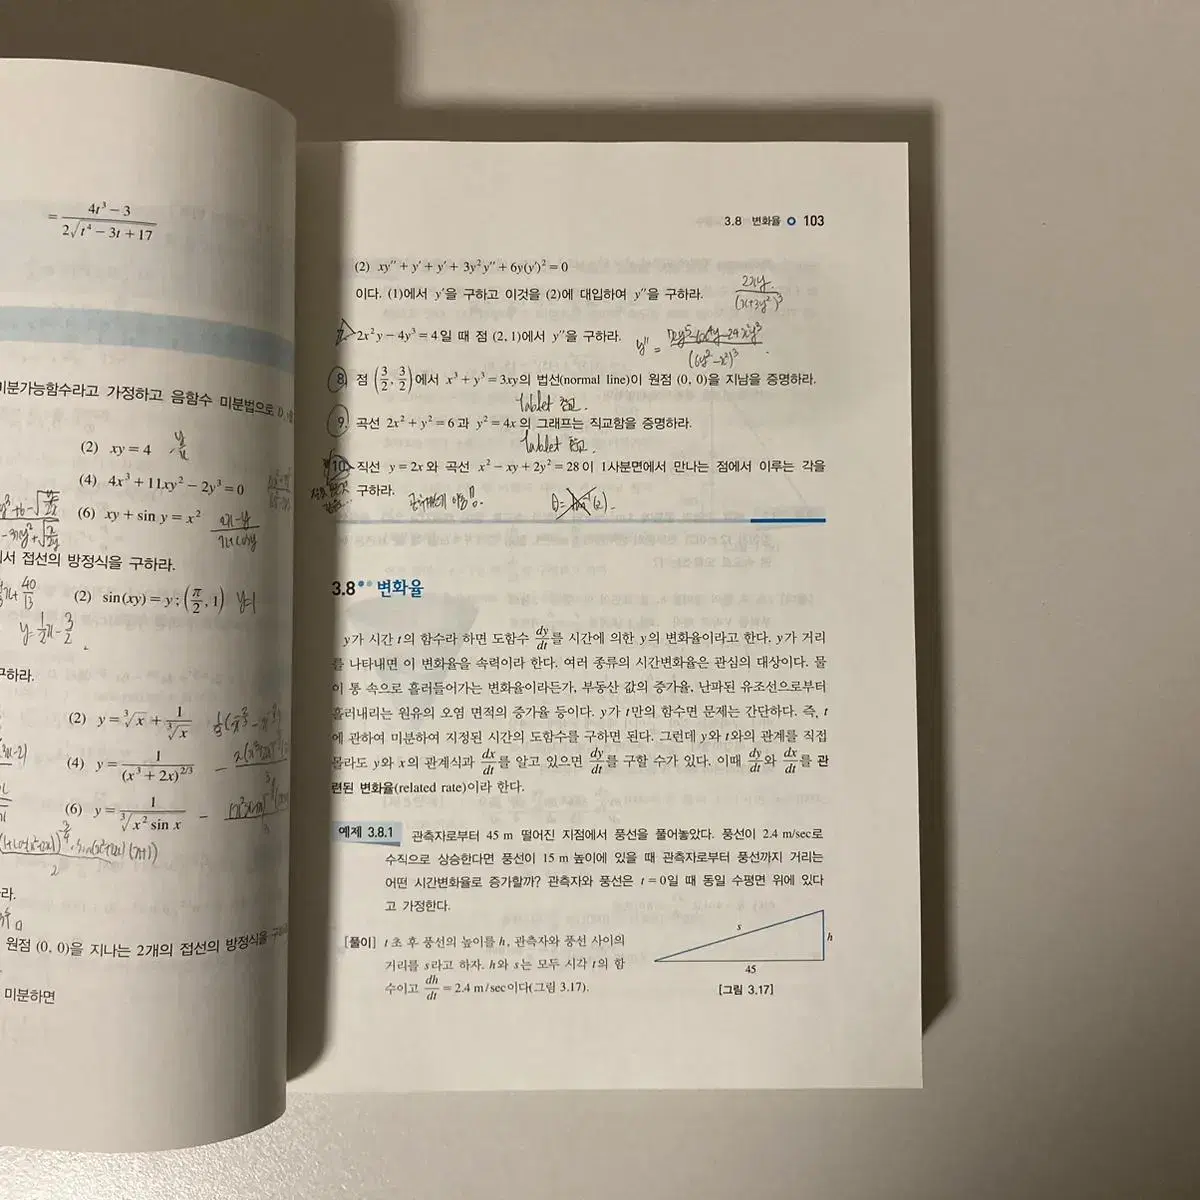 = (4t³ − 3) / (2√(t⁴ − 3t + 17))
미분가능함수라고 가정하고 음함수 미분법으로
(2) xy = 4
(4) 4x³ + 11xy² − 2y³ = 0
(6) xy + sin y = x²
서 접선의 방정식을 구하라.
(2) sin(xy) = y ; (π/2, 1) y=1
y = ½x − 3/2
구하라.
(2) y = ∛x + 1/∛x
(4) y = 1/(x³ + 2x)^(2/3)
(6) y = 1/∛(x² sin x)
라.
원점 (0, 0)을 지나는 2개의 접선의 방정식을
미분하면
3.8 변화율 103
(2) xy″ + y′ + y′ + 3y²y″ + 6y(y′)² = 0
이다. (1)에서 y′을 구하고 이것을 (2)에 대입하여 y″을 구하라. 2xy/(x+3y²)³
2x²y − 4y³ = 4일 때 점 (2, 1)에서 y″을 구하라. y″ =
8. 점 (3/2, 3/2)에서 x³ + y³ = 3xy의 법선(normal line)이 원점 (0, 0)을 지남을 증명하라.
Tablet 참고.
9. 곡선 2x² + y² = 6과 y² = 4x의 그래프는 직교함을 증명하라.
Tablet 참고.
10. 직선 y = 2x와 곡선 x² − xy + 2y² = 28이 1사분면에서 만나는 점에서 이루는 각을
구하라.
3.8 변화율
y가 시간 t의 함수라 하면 도함수 dy/dt를 시간에 의한 y의 변화율이라고 한다. y가 거리
를 나타내면 이 변화율을 속력이라 한다. 여러 종류의 시간변화율은 관심의 대상이다. 물
이 통 속으로 흘러들어가는 변화율이라든가, 부동산 값의 증가율, 난파된 유조선으로부터
흘러내리는 원유의 오염 면적의 증가율 등이다. y가 t만의 함수면 문제는 간단하다. 즉, t
에 관하여 미분하여 지정된 시간의 도함수를 구하면 된다. 그런데 y와 t와의 관계를 직접
몰라도 y와 x의 관계식과 dx/dt를 알고 있으면 dy/dt를 구할 수가 있다. 이때 dy/dt와 dx/dt를 관
련된 변화율(related rate)이라 한다.
예제 3.8.1 관측자로부터 45 m 떨어진 지점에서 풍선을 풀어놓았다. 풍선이 2.4 m/sec로
수직으로 상승한다면 풍선이 15 m 높이에 있을 때 관측자로부터 풍선까지 거리는
어떤 시간변화율로 증가할까? 관측자와 풍선은 t = 0일 때 동일 수평면 위에 있다
고 가정한다.
[풀이] t초 후 풍선의 높이를 h, 관측자와 풍선 사이의
거리를 s라고 하자. h와 s는 모두 시각 t의 함
수이고 dh/dt = 2.4 m/sec이다(그림 3.17).
s
h
45
[그림 3.17]